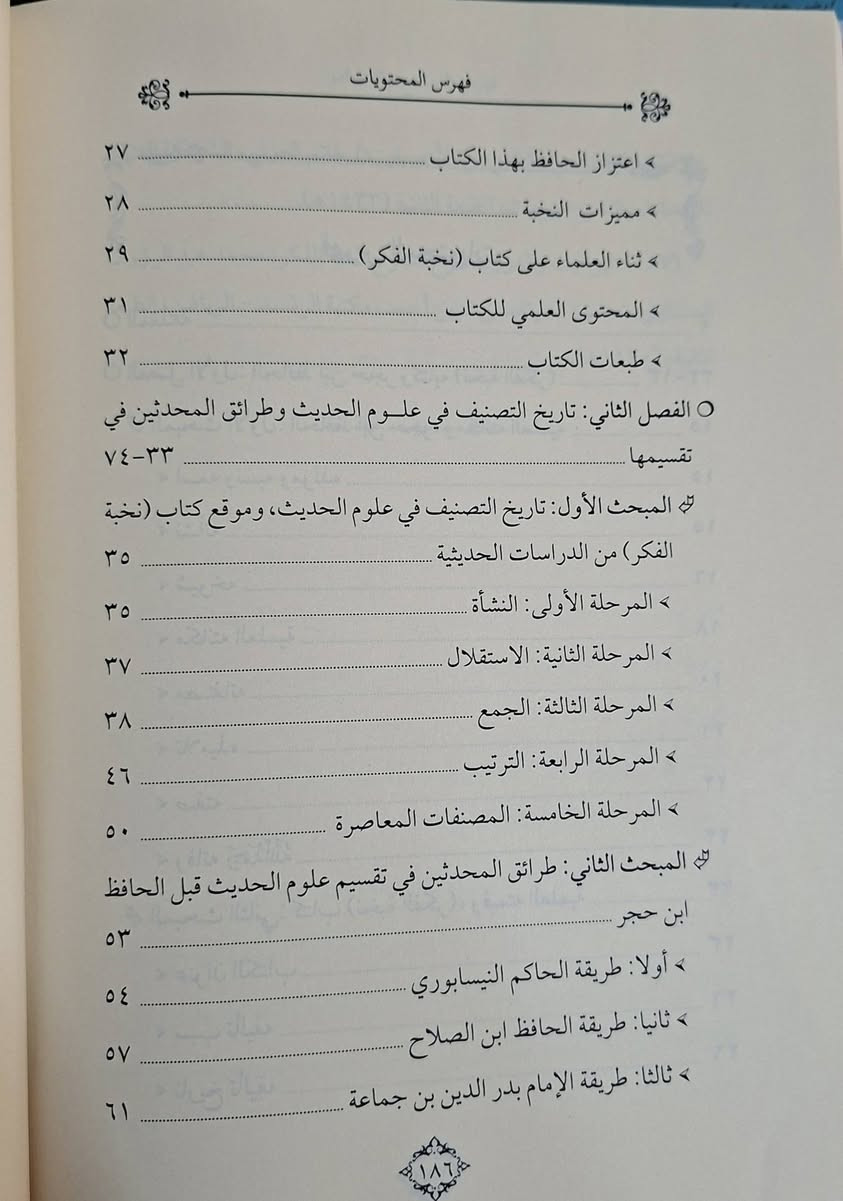 فهرس المحتويات
اعتزاز الحافظ بهذا الكتاب ........ ٢٧
مميزات النخبة ........ ٢٨
ثناء العلماء على كتاب (نخبة الفكر) ........ ٢٩
المحتوى العلمي للكتاب ........ ٣١
طبعات الكتاب ........ ٣٢
الفصل الثاني: تاريخ التصنيف في علوم الحديث وطرائق المحدثين في
تقسيمها ........ ٣٣-٧٤
المبحث الأول: تاريخ التصنيف في علوم الحديث، وموقع كتاب (نخبة
الفكر) من الدراسات الحديثية ........ ٣٥
المرحلة الأولى: النشأة ........ ٣٥
المرحلة الثانية: الاستقلال ........ ٣٧
المرحلة الثالثة: الجمع ........ ٣٨
المرحلة الرابعة: الترتيب ........ ٤٦
المرحلة الخامسة: المصنفات المعاصرة ........ ٥٠
المبحث الثاني: طرائق المحدثين في تقسيم علوم الحديث قبل الحافظ
ابن حجر ........ ٥٣
أولا: طريقة الحاكم النيسابوري ........ ٥٤
ثانيا: طريقة الحافظ ابن الصلاح ........ ٥٧
ثالثا: طريقة الإمام بدر الدين بن جماعة ........ ٦١
١٨٦